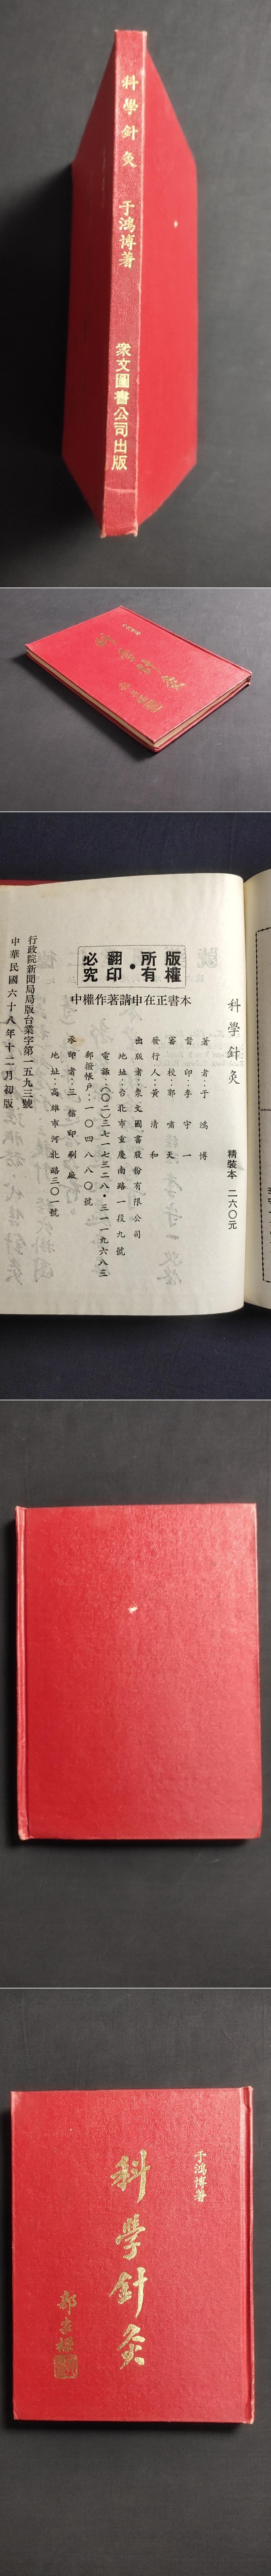 科學針灸
于鴻博著
衆文圖書公司出版
科學針灸
精裝本 二六〇元
版權所有•翻印必究
本書正在申請著作權中
著者:于鴻博
督印:李守一
審校:郭嘯天
發行人:黃清和
出版者:衆文圖書股份有限公司
地址:台北市重慶南路一段九號
電話:(〇二)三七一七三二八•三一一九六八三
郵撥帳戶:一〇四八八〇號
承印者:三信印刷廠
地址:高雄市河北路三〇一號
行政院新聞局局版台業字第一五九三號
中華民國六十八年十二月初版
于鴻博著
科學針灸